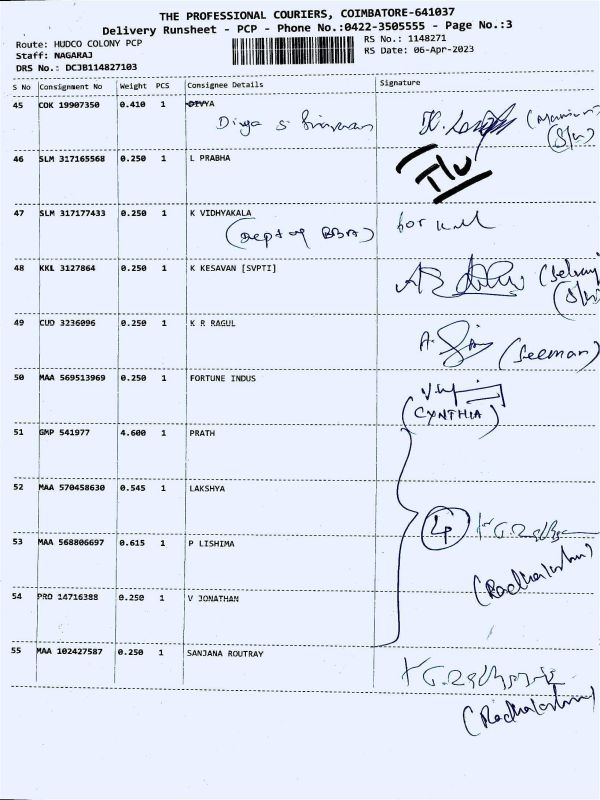 THE PROFESSIONAL COURIERS, COIMBATORE-641037
Delivery Runsheet - PCP - Phone No.:0422-3505555 - Page No.:3
Route: HUDCO COLONY PCP
RS No.: 1148271
Staff: NAGARAJ
RS Date: 06-Apr-2023
DRS No.: DCJB114827103
S No Consignment No Weight PCS Consignee Details Signature
45 COK 19907350 0.410 1 DIVYA
Divya S
46 SLM 317165568 0.250 1 L PRABHA
47 SLM 317177433 0.250 1 K VIDHYAKALA
(Dept of BBA) for
48 KKL 3127864 0.250 1 K KESAVAN [SVPTI]
49 CUD 3236096 0.250 1 K R RAGUL
(Seeman)
50 MAA 569513969 0.250 1 FORTUNE INDUS
(CYNTHIA)
51 GMP 541977 4.600 1 PRATH
52 MAA 570458630 0.545 1 LAKSHYA
53 MAA 568806697 0.615 1 P LISHIMA
54 PRO 14716388 0.250 1 V JONATHAN
55 MAA 102427587 0.250 1 SANJANA ROUTRAY